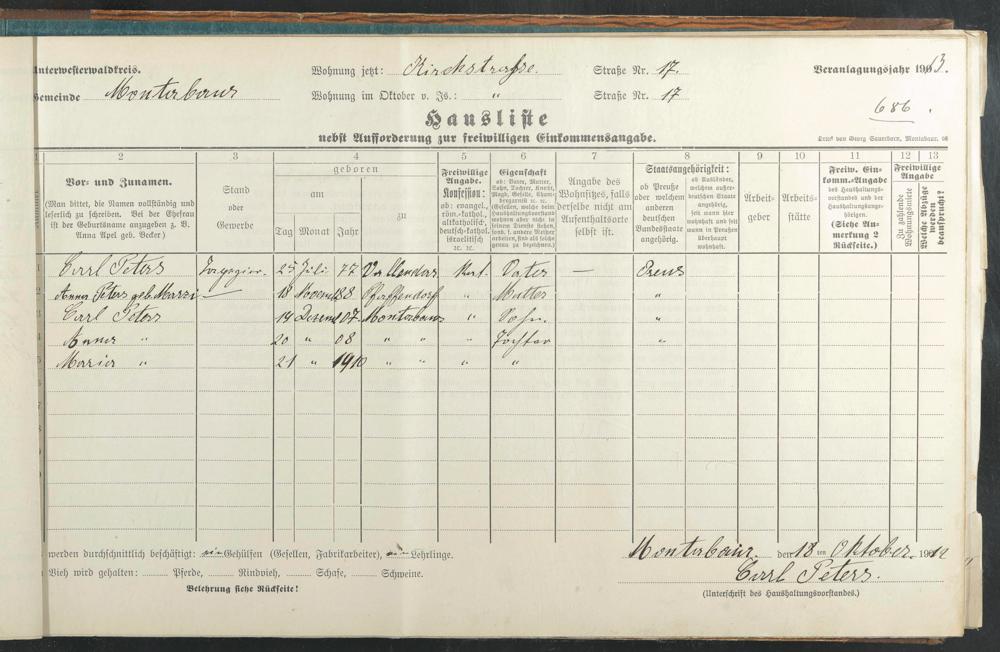 Unterwesterwaldkreis. Wohnung jetzt: Kirchstraße. Straße Nr. 17. Veranlagungsjahr 1913.
Gemeinde Montabaur Wohnung im Oktober v. Js.: " Straße Nr. 17
686.
Hausliste
nebst Aufforderung zur freiwilligen Einkommensangabe.
Druck von Georg Sauerborn, Montabaur.
1 2 3 4 5 6 7 8 9 10 11 12 13
Vor- und Zunamen.
(Man bittet, die Namen vollständig und
leserlich zu schreiben. Bei der Ehefrau
ist der Geburtsname anzugeben z. B.
Anna Apel geb. Becker.)
Stand
oder
Gewerbe
geboren
am
zu
Tag Monat Jahr
Freiwillige
Angabe.
Konfession:
ob: evangel.,
röm.-kathol.,
altkatholisch,
deutsch-kathol.
israelitisch
rc. rc.
Eigenschaft
ob: Vater, Mutter,
Sohn, Tochter, Knecht,
Magd, Geselle,
Angabe des
Wohnsitzes, falls
derselbe nicht am
Aufenthaltsorte
selbst ist.
Staatsangehörigkeit:
ob Preuße
oder welchem
anderen
deutschen
Bundesstaate
angehörig.
ob Ausländer,
welchem außer-
deutschen Staate
angehörig,
seit wann hier
wohnhaft und seit
wann in Preußen
überhaupt
wohnhaft.
Arbeit-
geber
Arbeits-
stätte
Freiw. Ein-
komm.-Angabe
des Haushaltungs-
vorstandes und der
Haushaltungsange-
hörigen.
(Siehe An-
merkung 2
Rückseite.)
Freiwillige
Angabe
Zu zahlende
Wohnungsmiete
Welche Abzüge
werden
beansprucht?
1 Carl Peters 25 Juli 77 Vallendar Kat. Vater —
2 Anna Peters geb. — 18 88 Pfaffendorf " Mutter "
3 Carl Peters 14 Dezemb 07 Montabaur " Sohn. "
4 Anna " 20 " 08 " " " Tochter "
5 Maria " 21 " 1910 " " " "
werden durchschnittlich beschäftigt: Gehülfen (Gesellen, Fabrikarbeiter), Lehrlinge.
Vieh wird gehalten: Pferde, Rindvieh, Schafe, Schweine.
Belehrung siehe Rückseite!
Montabaur. den 18 ten Oktober. 1912
Carl Peters.
(Unterschrift des Haushaltungsvorstandes.)